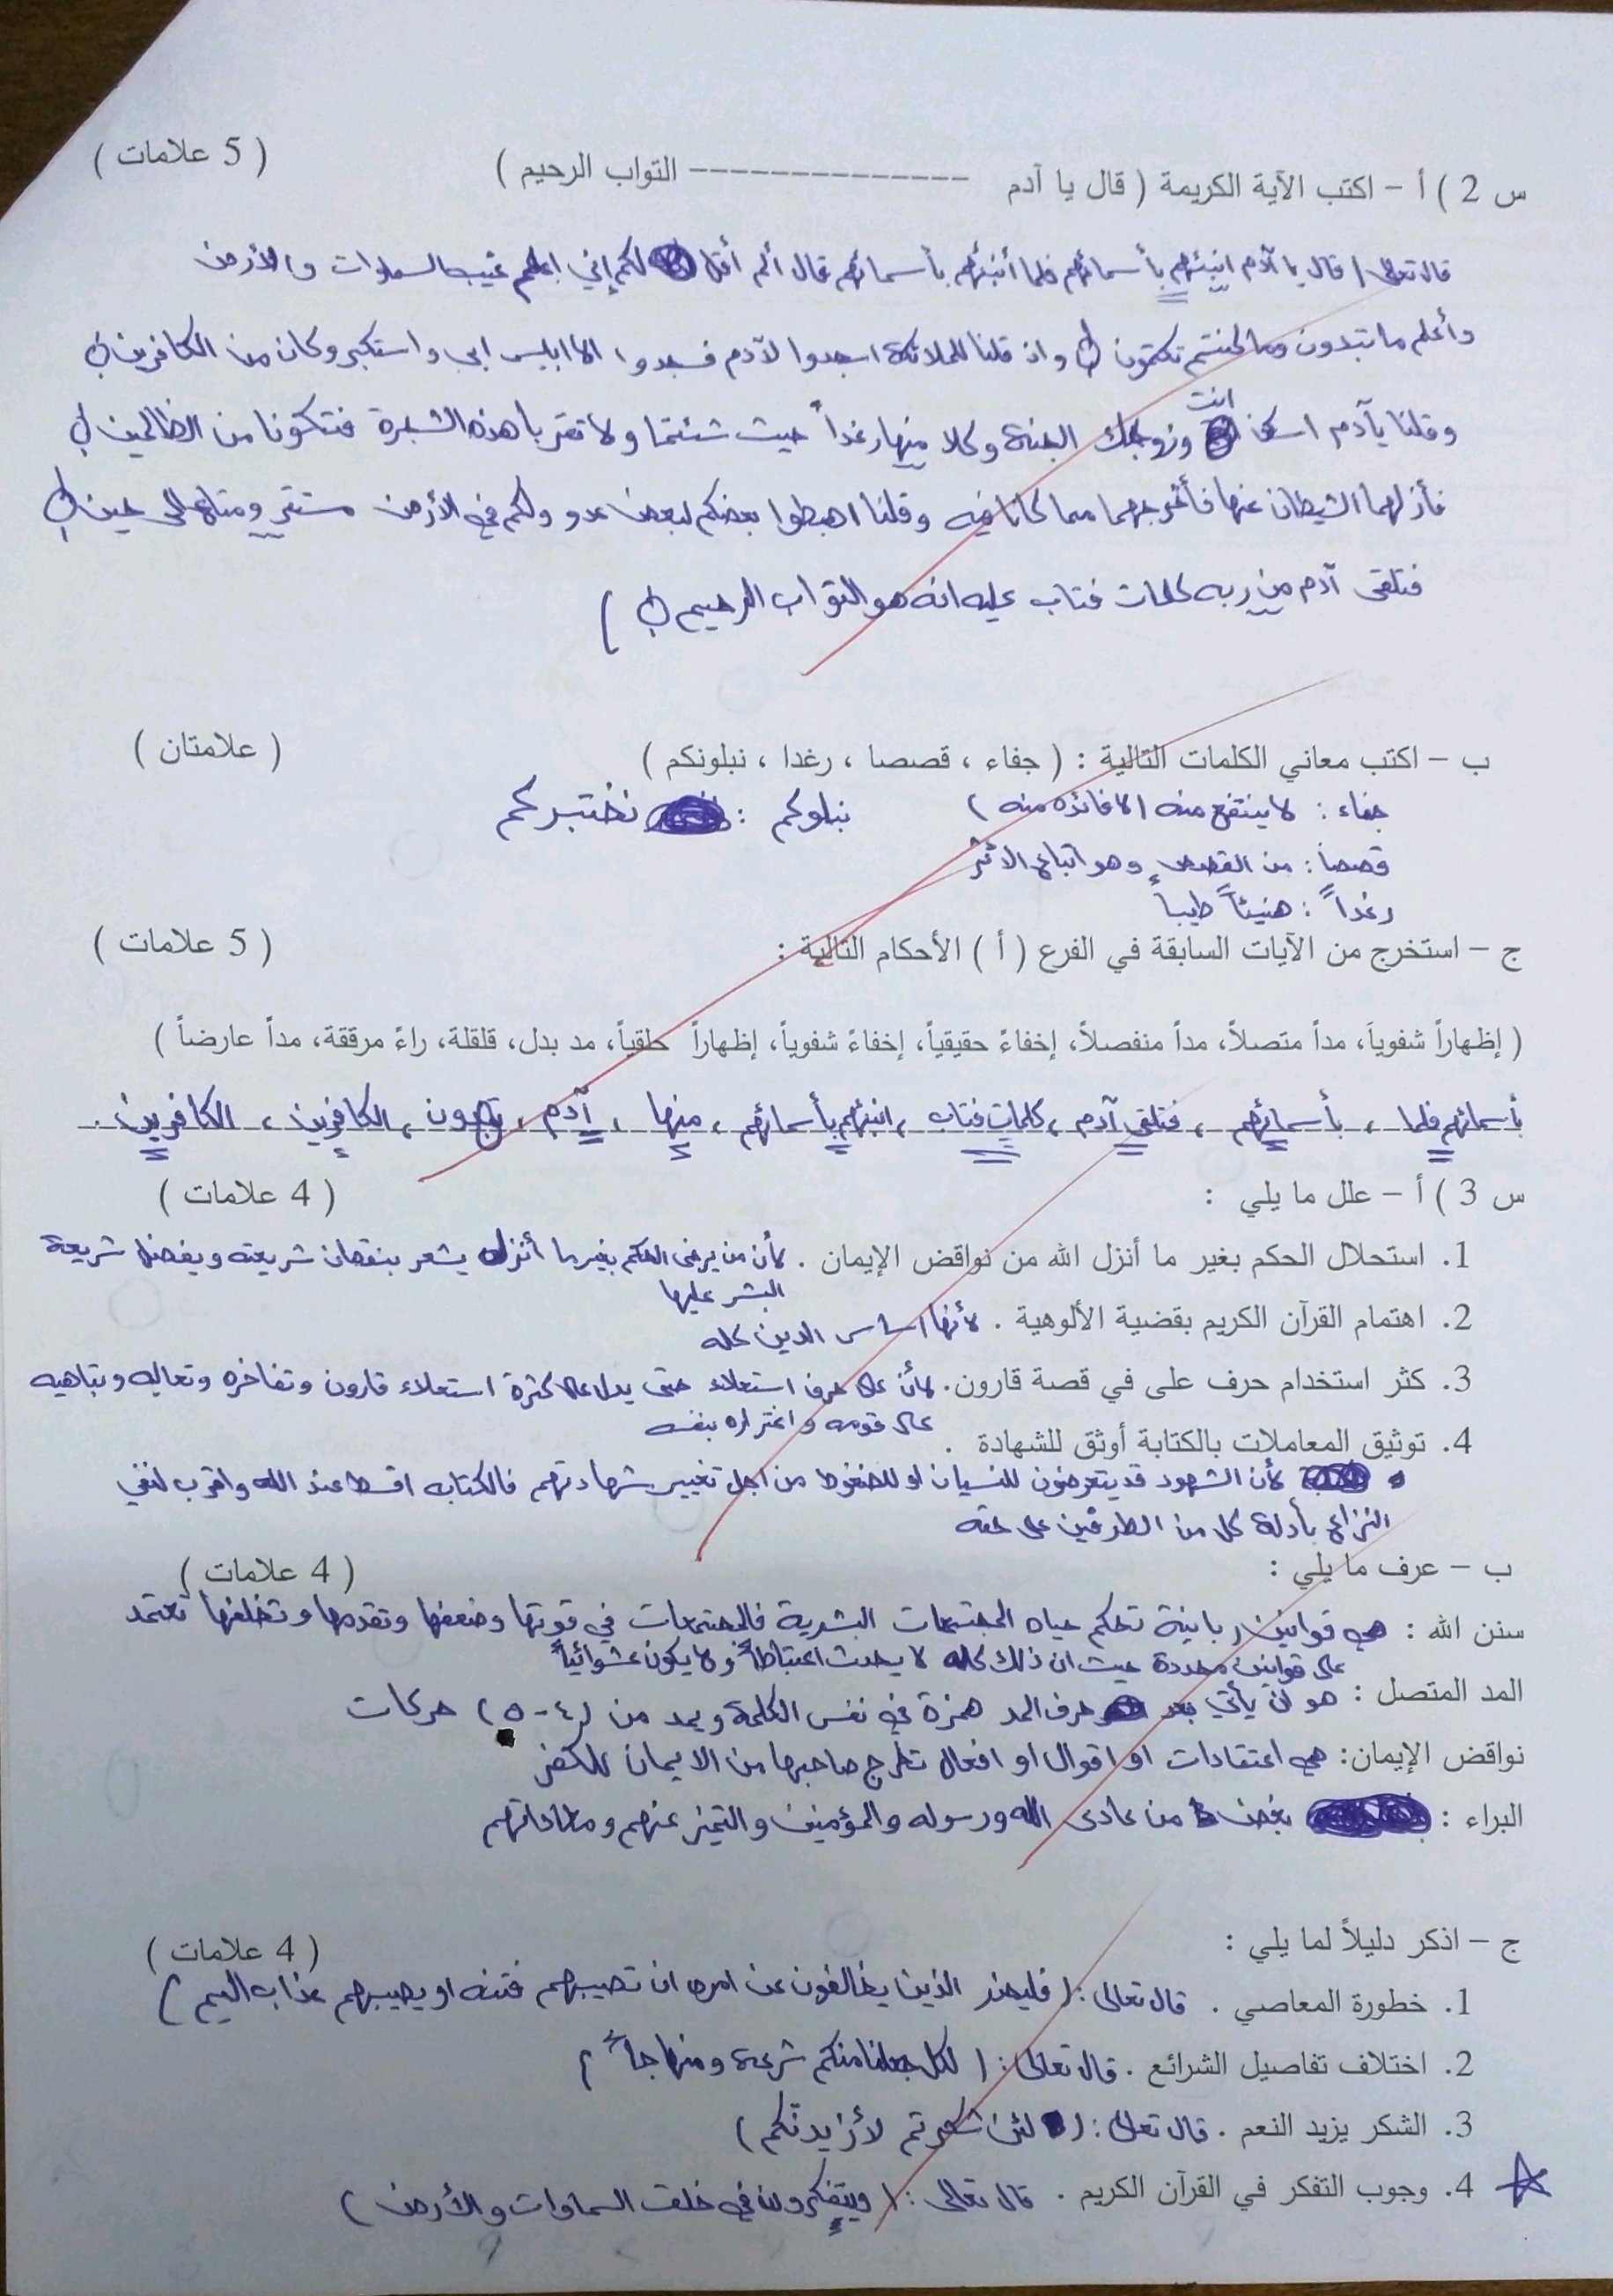 س 2 ) أ – اكتب الآية الكريمة ( قال يا آدم -------------- التواب الرحيم ) ( 5 علامات )
قال تعالى ( قال يا آدم انبئهم بأسمائهم فلما أنبئهم بأسمائهم قال ألم أقل لكم إني اعلم غيب السماوات والأرض
وأعلم ما تبدون وما كنتم تكتمون واذ قلنا للملائكة اسجدوا لآدم فسجدوا الا ابليس ابى واستكبر وكان من الكافرين
وقلنا يآدم اسكن انت وزوجك الجنة وكلا منها رغداً حيث شئتما ولا تقربا هذه الشجرة فتكونا من الظالمين
فأزلهما الشيطان عنها فأخرجهما مما كانا فيه وقلنا اهبطوا بعضكم لبعض عدو ولكم في الأرض مستقر ومتاع إلى حين
فتلقى آدم من ربه كلمات فتاب عليه انه هو التواب الرحيم )
ب – اكتب معاني الكلمات التالية : ( جفاء ، قصصا ، رغدا ، نبلونكم ) ( علامتان )
جفاء : لا ينتفع منه ( لا فائدة منه ) نبلوكم : نختبركم
قصصاً : من القصص وهو اتباع الاثر
رغداً : هنيئاً طيباً
ج – استخرج من الآيات السابقة في الفرع ( أ ) الأحكام التالية : ( 5 علامات )
( إظهاراً شفوياً، مداً متصلاً، مداً منفصلاً، إخفاءً حقيقياً، إخفاءً شفوياً، إظهاراً حلقياً، مد بدل، قلقلة، راءً مرققة، مداً عارضاً )
بأسمائهم فلما ، بأسمائهم ، فتلقى آدم ، كلماتٍ فتاب ، انبئهم بأسمائهم ، منها ، آدم ، تبدون ، الكافرين ، الكافرين .
س 3 ) أ – علل ما يلي : ( 4 علامات )
1. استحلال الحكم بغير ما أنزل الله من نواقض الإيمان . لأن من يرضى الحكم بغير ما أنزل يشعر بنقصان شريعته ويفضل شريعة
البشر عليها
2. اهتمام القرآن الكريم بقضية الألوهية . لأنها اساس الدين كله
3. كثر استخدام حرف على في قصة قارون. لأن على حرف استعلاء حتى يدل على كثرة استعلاء قارون وتفاخره وتعاليه وتباهيه
على قومه واغتراره بنفسه
4. توثيق المعاملات بالكتابة أوثق للشهادة .
لأن الشهود قد يتعرضون للنسيان او للضغوط من اجل تغيير شهادتهم فالكتابه اقسط عند الله واقرب لنفي
النزاع بأدلة كل من الطرفين على حقه
ب – عرف ما يلي : ( 4 علامات )
سنن الله : هي قوانين ربانية تحكم حياه المجتمعات البشرية فالمجتمعات في قوتها وضعفها وتقدمها وتخلفها تعتمد
على قوانين محددة حيث ان ذلك كله لا يحدث اعتباطاً ولا يكون عشوائياً
المد المتصل : هو ان يأتي بعد حرف المد همزة في نفس الكلمة ويمد من ( ٤ - ٥ ) حركات
نواقض الإيمان: هي اعتقادات او اقوال او افعال تخرج صاحبها من الايمان للكفر
البراء : بغض من عادى الله ورسوله والمؤمنين والتميز عنهم ومعاداتهم
ج – اذكر دليلاً لما يلي : ( 4 علامات )
1. خطورة المعاصي . قال تعالى : ( فليحذر الذين يخالفون عن امره ان تصيبهم فتنه او يصيبهم عذاب اليم )
2. اختلاف تفاصيل الشرائع . قال تعالى : ( لكل جعلنا منكم شرعة ومنهاجاً )
3. الشكر يزيد النعم . قال تعالى : ( لئن شكرتم لأزيدنكم )
4. وجوب التفكر في القرآن الكريم . قال تعالى : ( ويتفكرون في خلق السماوات والأرض )